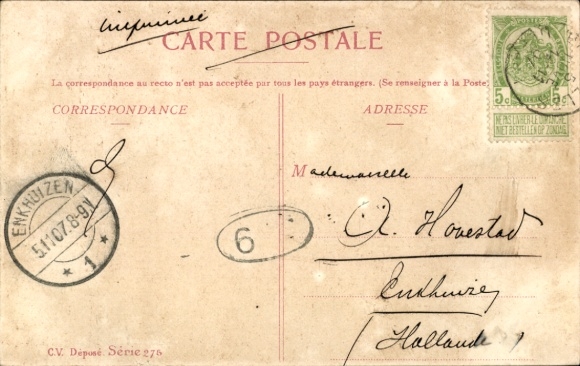 imprimé
CARTE POSTALE
La correspondance au recto n'est pas acceptée par tous les pays étrangers. (Se renseigner à la Poste)
CORRESPONDANCE
ADRESSE
POSTES
5c 5c
NE PAS LIVRER LE DIMANCHE
NIET BESTELLEN OP ZONDAG
Mademoiselle
A. Hovestad
Enkhuize
Hollande
ENKHUIZEN
5.11.07.8-9V
* 1 *
6
C.V. Déposé. Série 275